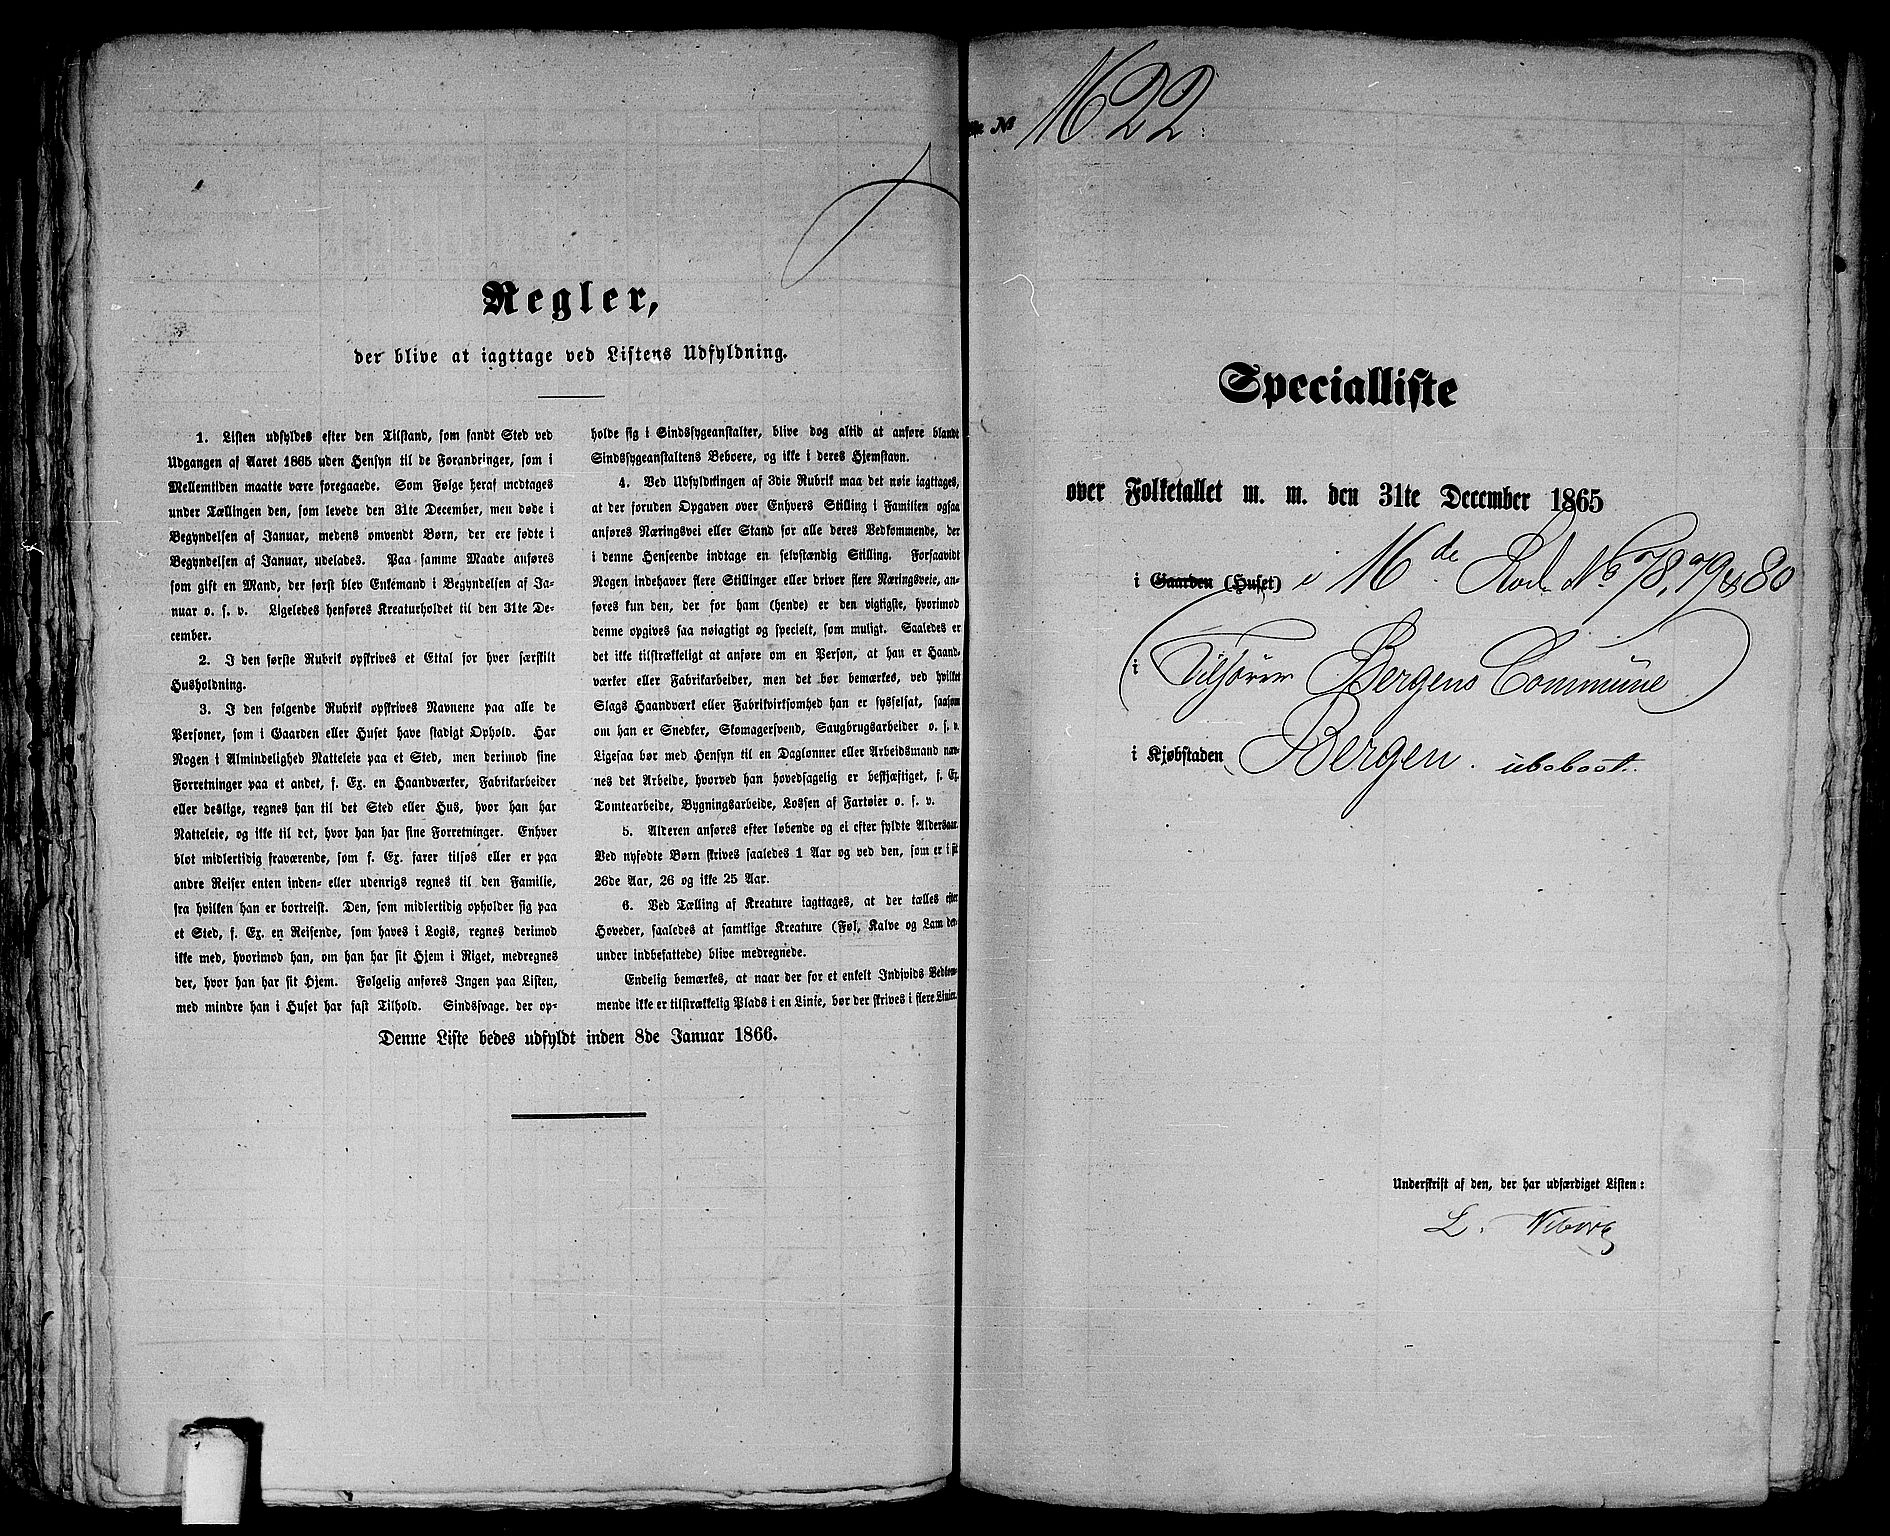 Regler,
der blive at iagttage ved Listens Udfyldning.
1. Listen udfyldes efter den Tilstand, som fandt Sted ved
Udgangen af Aaret 1865 uden Hensyn til de Forandringer, som i
Mellemtiden maatte være foregaaede. Som Følge heraf medtages
under Tællingen den, som levede den 31te December, men døde i
Begyndelsen af Januar, medens omvendt Børn, der ere fødte i
Begyndelsen af Januar, udelades. Paa samme Maade anføres
som gift en Mand, der først blev Enkemand i Begyndelsen af Ja-
nuar o. s. v. Ligeledes henføres Kreaturholdet til den 31te De-
cember.
2. I den første Rubrik opskrives et Ettal for hver særskilt
Husholdning.
3. I den følgende Rubrik opskrives Navnene paa alle de
Personer, som i Gaarden eller Huset have stadigt Ophold. Har
Nogen i Almindelighed Natteleie paa et Sted, men derimod sine
Forretninger paa et andet, f. Ex. en Haandværker, Fabrikarbeider
eller deslige, regnes han til det Sted eller Hus, hvor han har
Natteleie, og ikke til det, hvor han har sine Forretninger. Enhver
blot midlertidig fraværende, som f. Ex. farer tilsøs eller er paa
andre Reiser enten inden- eller udenrigs regnes til den Familie,
fra hvilken han er bortreist. Den, som midlertidig opholder sig paa
et Sted, f. Ex. en Reisende, som haves i Logis, regnes derimod
ikke med, hvorimod han, om han har sit Hjem i Riget, medregnes
der, hvor han har sit Hjem. Følgelig anføres Ingen paa Listen,
med mindre han i Huset har fast Tilhold. Sindssvage, der op-
holde sig i Sindssygeanstalter, blive dog altid at anføre blandt
Sindssygeanstaltens Beboere, og ikke i deres Hjemstavn.
4. Ved Udfyldningen af 3die Rubrik maa det nøie iagttages,
at der foruden Opgaven over Enhvers Stilling i Familien ogsaa
anføres Næringsvei eller Stand for alle deres Vedkommende, der
i denne Henseende indtage en selvstændig Stilling. Forsaavidt
Nogen indehaver flere Stillinger eller driver flere Næringsveie, an-
føres kun den, der for ham (hende) er den vigtigste, hvorimod
denne opgives saa nøiagtigt og specielt, som muligt. Saaledes er
det ikke tilstrækkeligt at anføre om en Person, at han er Haand-
værker eller Fabrikarbeider, men det bør bemærkes, ved hvilket
Slags Haandværk eller Fabrikvirksomhed han er sysselsat, saasom
om han er Snedker, Skomagersvend, Saugbrugsarbeider o. s. v.
Ligesaa bør med Hensyn til en Daglønner eller Arbeidsmand næv-
nes det Arbeide, hvorved han hovedsagelig er beskjæftiget, f. Ex.
Tomtearbeide, Bygningsarbeide, Lossen af Fartøier o. s. v.
5. Alderen anføres efter løbende og ei efter fyldte Aldersaar.
Ved nyfødte Børn skrives saaledes 1 Aar og ved den, som er i sit
26de Aar, 26 og ikke 25 Aar.
6. Ved Tælling af Kreature iagttages, at der tælles efter
Hoveder, saaledes at samtlige Kreature (Føl, Kalve og Lam der-
under indbefattede) blive medregnede.
Endelig bemærkes, at naar der for et enkelt Individs Vedkom-
mende ikke er tilstrækkelig Plads i en Linie, bør der skrives i flere Linier.
Denne Liste bedes udfyldt inden 8de Januar 1866.
№ 1622
Specialliste
over Folketallet m. m. den 31te December 1865
i Gaarden (Huset) i 16de Rode No 78, 79 & 80
i Tilhører Bergens Commune
i Kjøbstaden Bergen. ubeboet.
Underskrift af den, der har udfærdiget Listen:
L. Wiborg